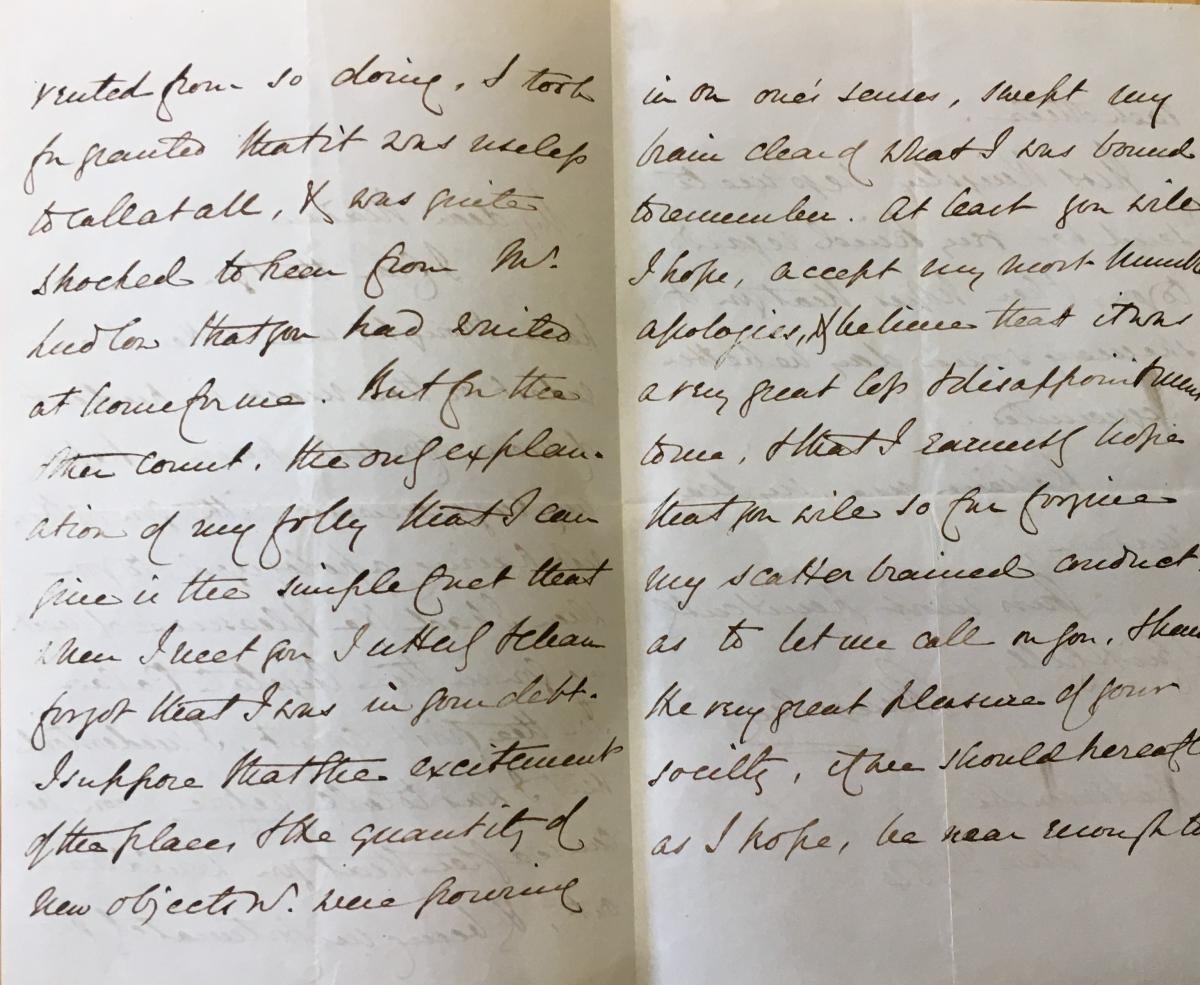 vented from so doing. I took
for granted that it was useless
to call at all, & was quite
shocked to hear from Mr.
Ludlow that you had waited
at home for me. But for the
other count. the only explan-
ation of my folly that I can
give is the simple fact that
when I meet you I utterly & clean
forgot that I was in your debt.
I suppose that the excitement
of the place, & the quantity of
new objects wh. were
in on one's senses, swept my
brain clear of what I was bound
to remember. At least you will
I hope, accept my most humble
apologies, & believe that it was
a very great loss & disappointment
to me, & that I earnestly hope
that you will so far forgive
my scatter brained conduct.
as to let me call on you, & have
the very great pleasure of your
society, if we should hereafter
as I hope, be near enough to